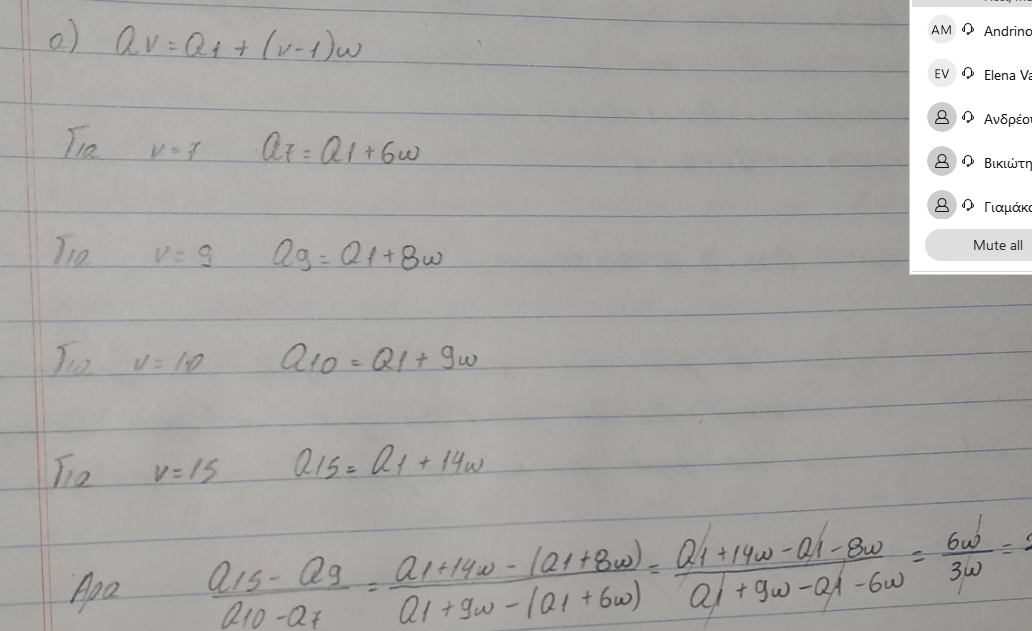 α) αν = α1 + (ν-1)ω
Για ν=7 α7 = α1 + 6ω
Για ν=9 α9 = α1 + 8ω
Για ν=10 α10 = α1 + 9ω
Για ν=15 α15 = α1 + 14ω
Άρα (α15 - α9)/(α10 - α7) = (α1+14ω - (α1+8ω))/(α1+9ω - (α1+6ω)) = (α1+14ω-α1-8ω)/(α1+9ω-α1-6ω) = 6ω/3ω =
AM Andrino
EV Elena Va
Ανδρέου
Βικιώτη
Γιαμάκο
Mute all